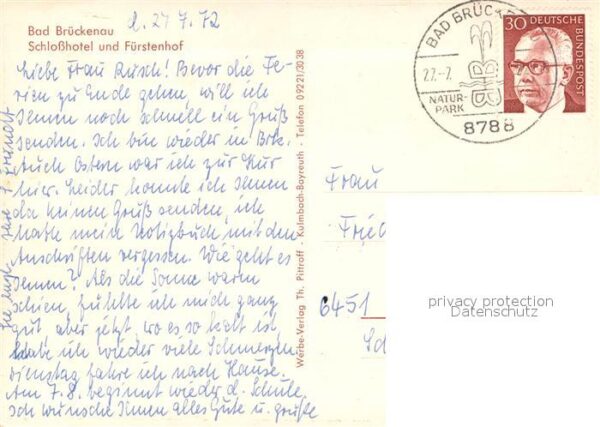 d. 27 7. 72
Bad Brückenau
Schloßhotel und Fürstenhof
Liebe Frau Rusch! Bevor die Fe-
rien zu Ende gehen, will ich
Ihnen noch schnell ein Gruß
senden. Ich bin wieder in Brk.
Auch Ostern war ich zur Kur
hier. Leider konnte ich Ihnen
da keinen Gruß senden, ich
hatte mein Notizbuch mit den
Anschriften vergessen. Wie geht es
Ihnen? Als die Sonne warm
schien, fühlte ich mich ganz
gut, aber jetzt, wo es so kalt ist,
habe ich wieder viele Schmerzen.
Dienstag fahre ich nach Hause.
Am 7.8. beginnt wieder d. Schule.
Ich wünsche Ihnen alles Gute u. grüße
Sie Ihre
Werbe-Verlag Th. Pittroff - Kulmbach-Bayreuth - Telefon 09221/3038
BAD BRÜCKE
27.-7.
NATUR-
PARK
8788
30 DEUTSCHE
BUNDESPOST
Frau
Fried
6451
privacy protection
Datenschutz